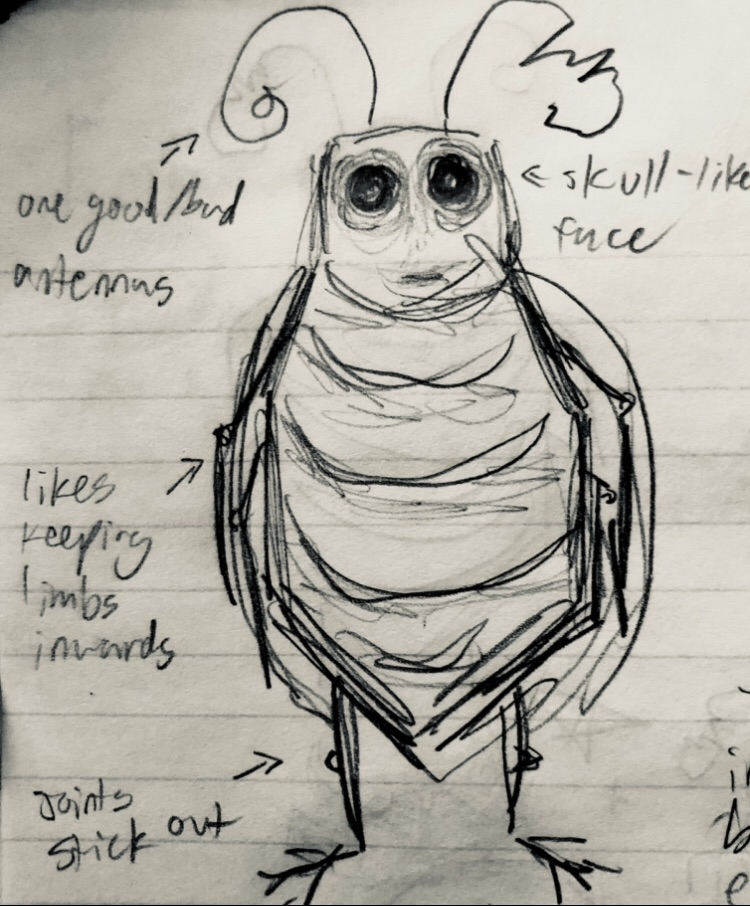 one good/bad
antennas
← skull-like
face
likes
keeping
limbs
inwards
Joints
stick out